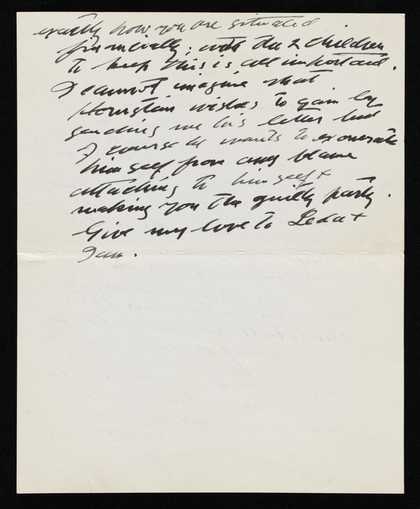 exactly how you are situated
financially; with the 2 children
to keep this is all important.
I cannot imagine what
Houghton wishes to gain by
sending me his letter but
of course he wants to exonerate
himself from any blame
attaching to himself +
making you the guilty party.
Give my love to Leda +
Ian.